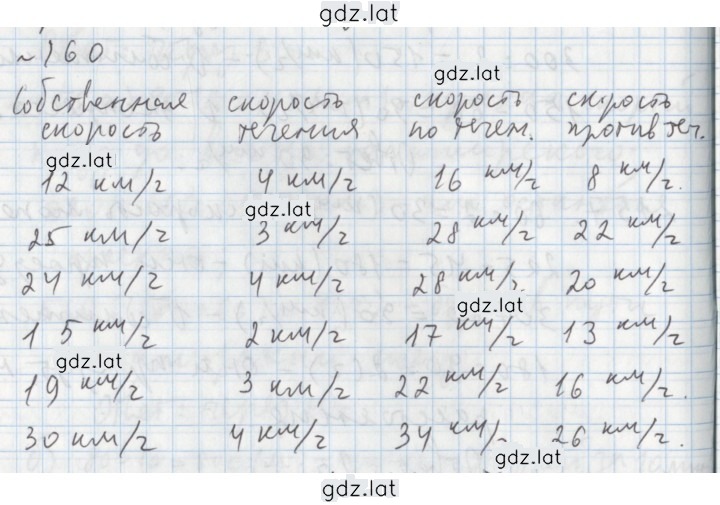 gdz.lat
№160
gdz.lat
Собственная скорость скорость скорость
скорость течения по течен. против теч.
gdz.lat
12 км/г 4 км/г 16 км/г 8 км/г.
gdz.lat
25 км/г 3 км/г 28 км/г 22 км/г
24 км/г 4 км/г 28 км/г. 20 км/г
gdz.lat
15 км/г 2 км/г 17 км/г 13 км/г
gdz.lat
19 км/г 3 км/г 22 км/г 16 км/г.
30 км/г 4 км/г 34 км/г 26 км/г.
gdz.lat
gdz.lat